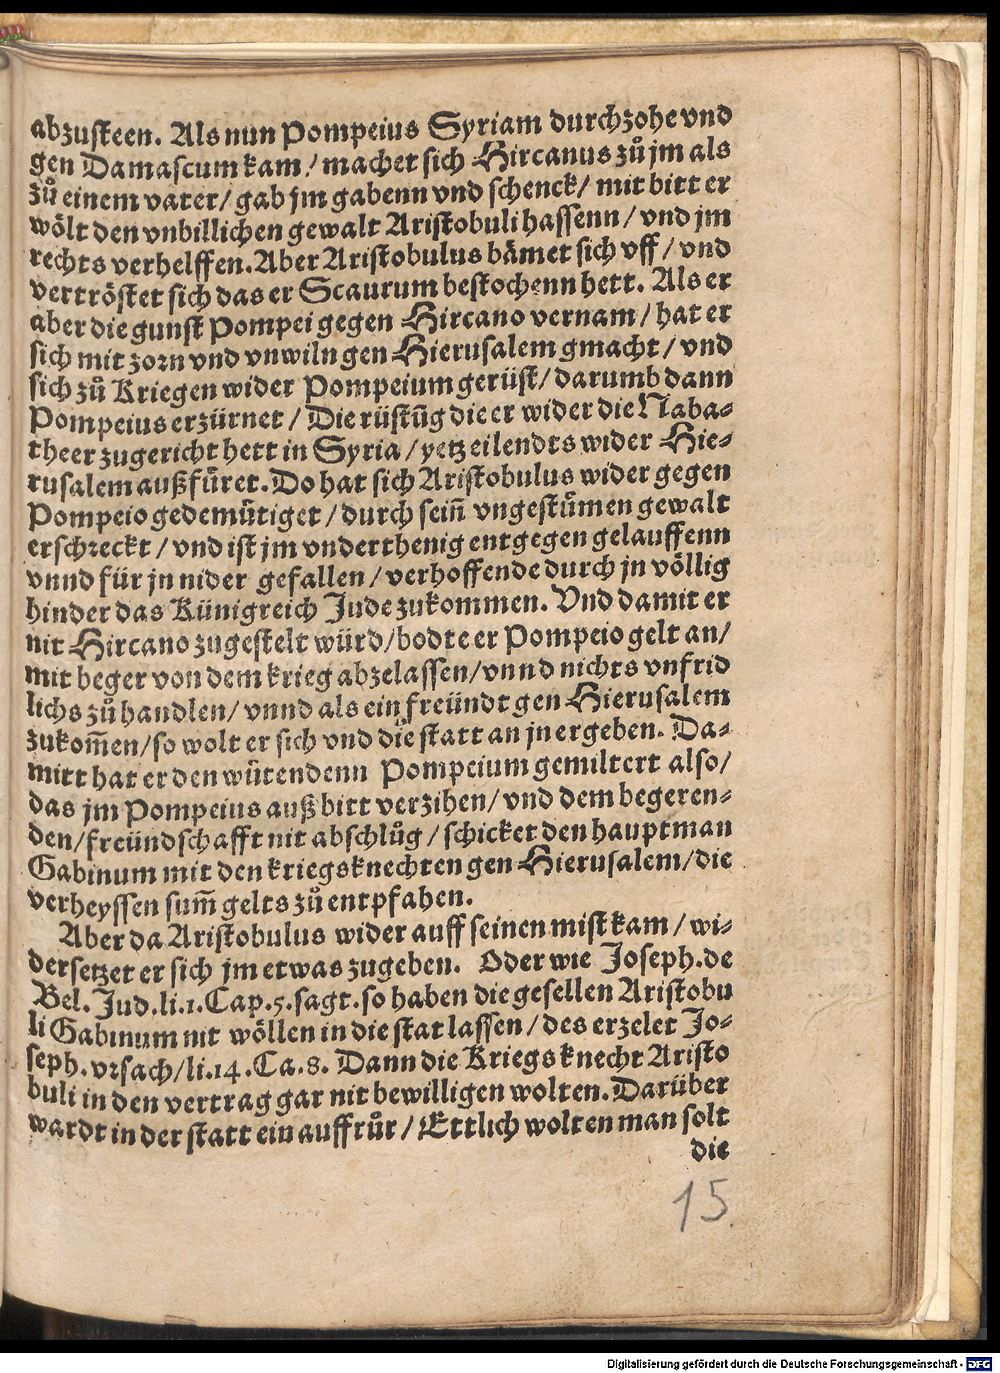 abzusteen. Als nun Pompeius Syriam durchzohe vnd
gen Damascum kam / machet sich Hircanus zů jm als
zů einem vater / gab jm gabenn vnd schenck / mit bitt er
wölt den vnbillichen gewalt Aristobuli hassenn / vnd jm
rechts verhelffen. Aber Aristobulus bämet sich vff / vnd
vertröstet sich das er Scaurum bestochenn hett. Als er
aber die gunst Pompei gegen Hircano vernam / hat er
sich mit zorn vnd vnwiln gen Hierusalem gmacht / vnd
sich zů Kriegen wider Pompeium gerüst / darumb dann
Pompeius erzürnet / Die rüstūg die er wider die Naba⸗
theer zugericht hett in Syria / yetz eilendts wider Hie⸗
rusalem außfüret. Do hat sich Aristobulus wider gegen
Pompeio gedemütiget / durch sein̄ vngestümen gewalt
erschreckt / vnd ist jm vnderthenig entgegen gelauffenn
vnnd für jn nider gefallen / verhoffende durch jn völlig
hinder das Künigreich Jude zukommen. Vnd damit er
nit Hircano zugestelt würd / bodte er Pompeio gelt an /
mit beger von dem krieg abzelassen / vnnd nichts vnfrid
lichs zů handlen / vnnd als ein freündt gen Hierusalem
zukom̄en / so wolt er sich vnd die statt an jn ergeben. Da⸗
mitt hat er den wütendenn Pompeium gemiltert also /
das jm Pompeius auß bitt verzihen / vnd dem begeren⸗
den / freündschafft nit abschlůg / schicket den hauptman
Gabinum mit den kriegsknechten gen Hierusalem / die
verheyssen sum̄ gelts zů entpfahen.
Aber da Aristobulus wider auff seinen mist kam / wi⸗
dersetzet er sich jm etwas zugeben. Oder wie Joseph. de
Bel. Jud. li. 1. Cap. 5. sagt. so haben die gesellen Aristobu
li Gabinum nit wöllen in die stat lassen / des erzelet Jo⸗
seph. vrsach / li. 14. Ca. 8. Dann die Kriegsknecht Aristo
buli in den vertrag gar nit bewilligen wolten. Darüber
wardt in der statt ein auffrůr / Ettlich wolten man solt
die
15
Digitalisierung gefördert durch die Deutsche Forschungsgemeinschaft - DFG